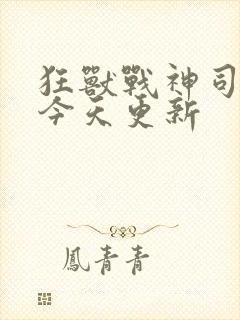 狂獸戰神司
今天更新
鳳青青